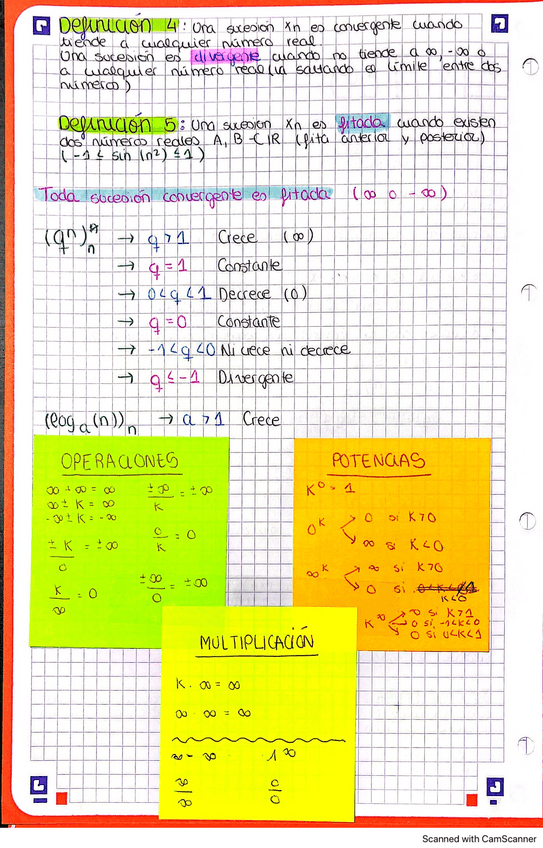 Definición 4: Una sucesión Xn es convergente cuando
tiende a cualquier número real.
Una sucesión es divergente cuando no tiende a ∞, -∞ o
a cualquier número real (va saltando el límite entre dos
números)
Definición 5: Una sucesión Xn es fitada cuando existen
dos números reales A, B ⊂ IR (fita anterior y posterior)
(-1 ≤ sin (n²) ≤ 1)
Toda sucesión convergente es fitada (∞ o -∞)
(qⁿ)n → q > 1 Crece (∞)
→ q = 1 Constante
→ 0 < q < 1 Decrece (0)
→ q = 0 Constante
→ -1 < q < 0 Ni crece ni decrece
→ q ≤ -1 Divergente
(log a (n))n → a > 1 Crece
OPERACIONES
∞ + ∞ = ∞
∞ ± K = ∞
-∞ ± K = -∞
± K / 0 = ± ∞
K / ∞ = 0
± ∞ / K = ± ∞
0 / K = 0
± ∞ / 0 = ± ∞
POTENCIAS
K⁰ = 1
0^K 0 si K > 0
∞ si K < 0
∞^K ∞ si K > 0
0 si K < 0
K^∞ ∞ si K > 1
0 si -1 < K < 0
0 si 0 < K < 1
MULTIPLICACIÓN
K · ∞ = ∞
∞ · ∞ = ∞
∞ - ∞ 1^∞
∞ / ∞ 0 / 0
Scanned with CamScanner